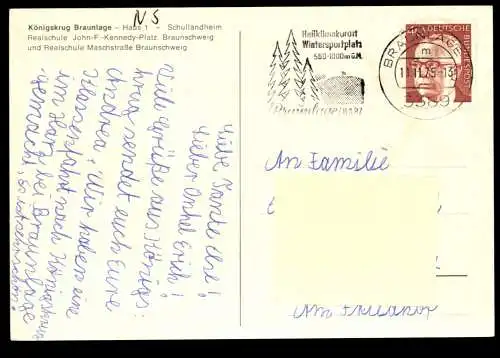 NS
Königskrug Braunlage – Haus 1 – Schullandheim
Realschule John-F.-Kennedy-Platz Braunschweig
und Realschule Maschstraße Braunschweig
Liebe Tante Else!
Lieber Onkel Erich!
Viele Grüße aus Königs=
krug sendet euch Eure
Andrea. Wir haben eine
Klassenfahrt nach Königskrug
im Harz bei Braunlage
gemacht,
Heilklimakurort
Wintersportplatz
560-1000m ü.M.
Braunlage
BRAUNLAGE
m
11.11.75-13
3389
40
DEUTSCHE BUNDESPOST
An Familie
Am